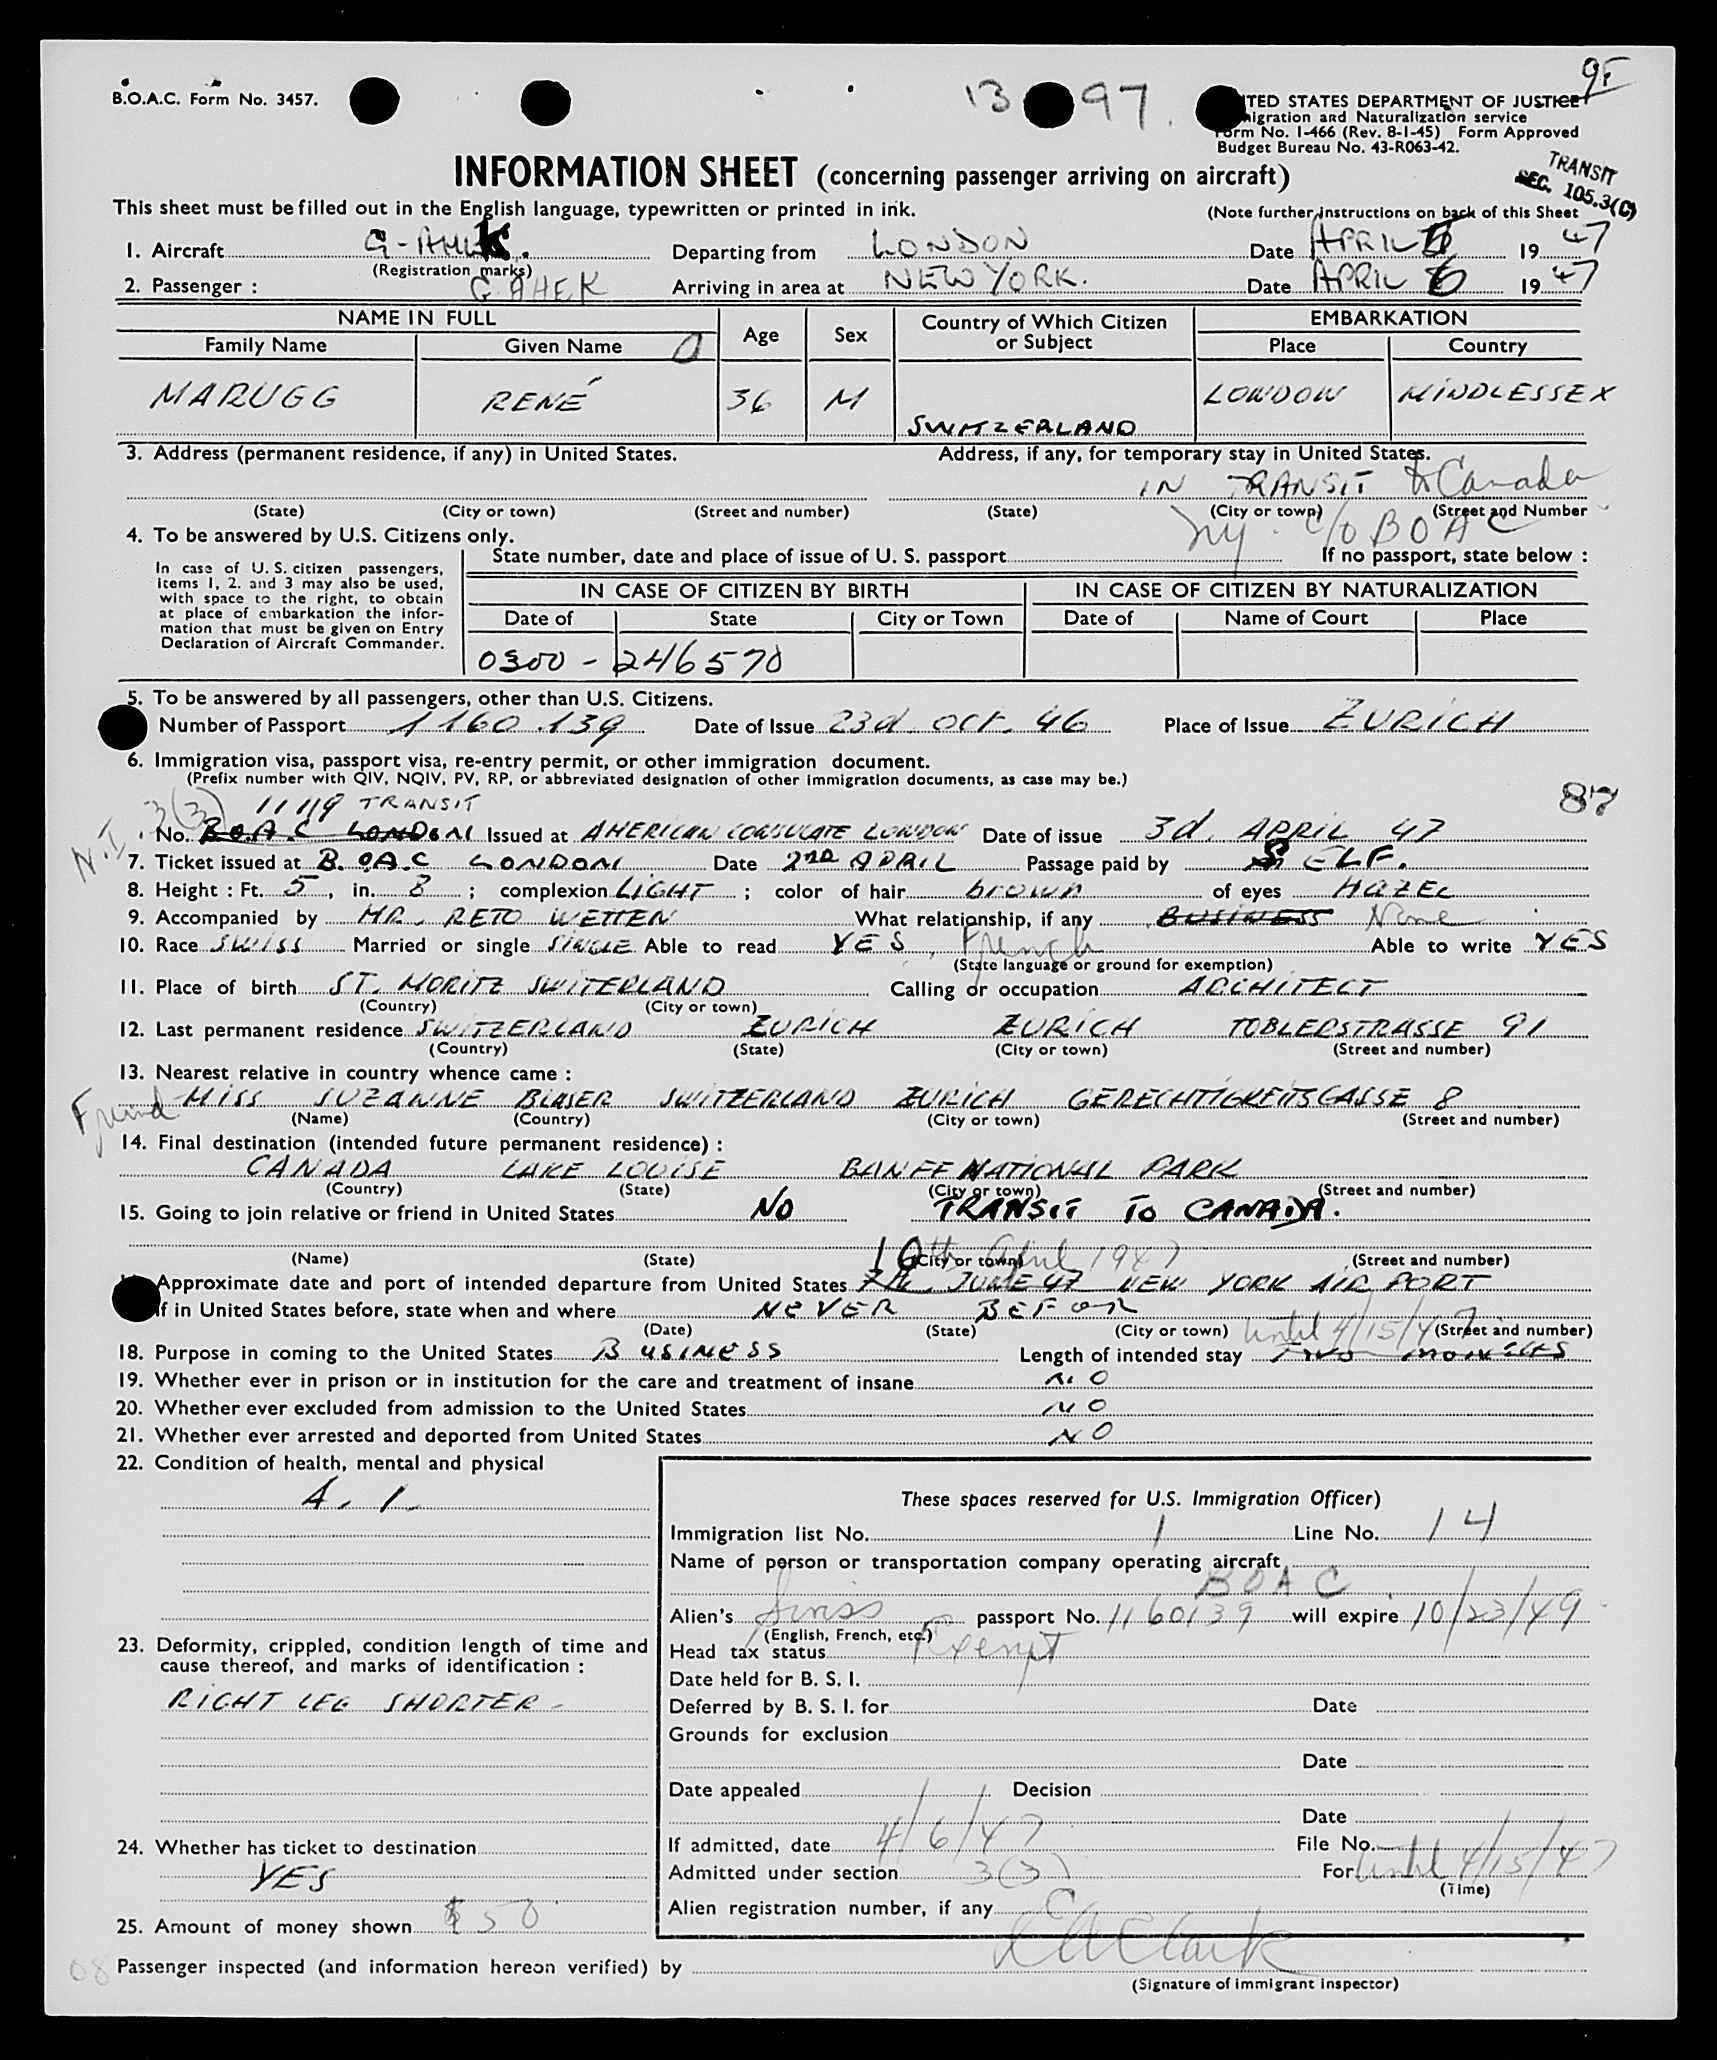 B.O.A.C. Form No. 3457.
13 97.
TED STATES DEPARTMENT OF JUSTICE
igration and Naturalization service
Form No. I-466 (Rev. 8-1-45) Form Approved
Budget Bureau No. 43-R063-42.
INFORMATION SHEET (concerning passenger arriving on aircraft)
TRANSIT
SEC. 105.3(C)
This sheet must be filled out in the English language, typewritten or printed in ink.
(Note further instructions on back of this Sheet
1. Aircraft G-AHEK. Departing from LONDON Date APRIL 5 19 47
(Registration marks)
2. Passenger : G AHEK Arriving in area at NEW YORK. Date APRIL 6 19 47
NAME IN FULL Age Sex Country of Which Citizen or Subject EMBARKATION
Family Name Given Name Place Country
MARUGG RENÉ 36 M SWITZERLAND LONDON MIDDLESSEX
3. Address (permanent residence, if any) in United States. Address, if any, for temporary stay in United States.
IN TRANSIT to Canada
(State) (City or town) (Street and number) (State) (City or town) (Street and Number
ny. c/o BOAC
4. To be answered by U.S. Citizens only.
State number, date and place of issue of U. S. passport If no passport, state below :
In case of U. S. citizen passengers,
items 1, 2. and 3 may also be used,
with space to the right, to obtain
at place of embarkation the infor-
mation that must be given on Entry
Declaration of Aircraft Commander.
IN CASE OF CITIZEN BY BIRTH IN CASE OF CITIZEN BY NATURALIZATION
Date of State City or Town Date of Name of Court Place
0300 - 246570
5. To be answered by all passengers, other than U.S. Citizens.
Number of Passport 1160.139 Date of Issue 23d. Oct. 46 Place of Issue ZURICH
6. Immigration visa, passport visa, re-entry permit, or other immigration document.
(Prefix number with QIV, NQIV, PV, RP, or abbreviated designation of other immigration documents, as case may be.)
87
3(3) 11119 TRANSIT
N.I
No. B.O.A.C LONDON Issued at AMERICAN CONSULATE LONDON Date of issue 3d. APRIL 47
7. Ticket issued at B.O.A.C LONDON Date 2ND APRIL Passage paid by SELF.
8. Height : Ft. 5, in. 8 ; complexion LIGHT ; color of hair brown of eyes HAZEL
9. Accompanied by MR. RETO WETTEN What relationship, if any BUSINESS None
10. Race SWISS Married or single SINGLE Able to read YES, French Able to write YES
(State language or ground for exemption)
11. Place of birth ST. MORITZ SWITERLAND Calling or occupation ARCHITECT
(Country) (City or town)
12. Last permanent residence SWITZERLAND ZURICH ZURICH TOBLERSTRASSE 91
(Country) (State) (City or town) (Street and number)
13. Nearest relative in country whence came :
Friend MISS SUZANNE BLASER SWITZERLAND ZURICH GERECHTIGKEITSGASSE 8
(Name) (Country) (City or town) (Street and number)
14. Final destination (intended future permanent residence) :
CANADA LAKE LOUISE BANFF NATIONAL PARK
(Country) (State) (City or town) (Street and number)
15. Going to join relative or friend in United States NO TRANSIT To CANADA.
(Name) (State) (City or town) (Street and number)
10th April 1947
Approximate date and port of intended departure from United States 7th. JUNE 47 NEW YORK AIR PORT
If in United States before, state when and where NEVER BEFOR
(Date) (State) (City or town) (Street and number)
until 4/15/47
18. Purpose in coming to the United States BUSINESS Length of intended stay TWO MONTHS
19. Whether ever in prison or in institution for the care and treatment of insane NO
20. Whether ever excluded from admission to the United States NO
21. Whether ever arrested and deported from United States NO
22. Condition of health, mental and physical
A. 1.
These spaces reserved for U.S. Immigration Officer)
Immigration list No. 1 Line No. 14
Name of person or transportation company operating aircraft
BOAC
Alien's Swiss passport No. 1160139 will expire 10/23/49
(English, French, etc.)
23. Deformity, crippled, condition length of time and
cause thereof, and marks of identification :
RIGHT LEG SHORTER -
Head tax status Exempt
Date held for B. S. I.
Deferred by B. S. I. for Date
Grounds for exclusion
Date
Date appealed Decision
Date
24. Whether has ticket to destination
YES
If admitted, date 4/6/47 File No.
Admitted under section 3(3) For until 4/15/47
(Time)
Alien registration number, if any
25. Amount of money shown $50
08
Passenger inspected (and information hereon verified) by Clark
(Signature of immigrant inspector)